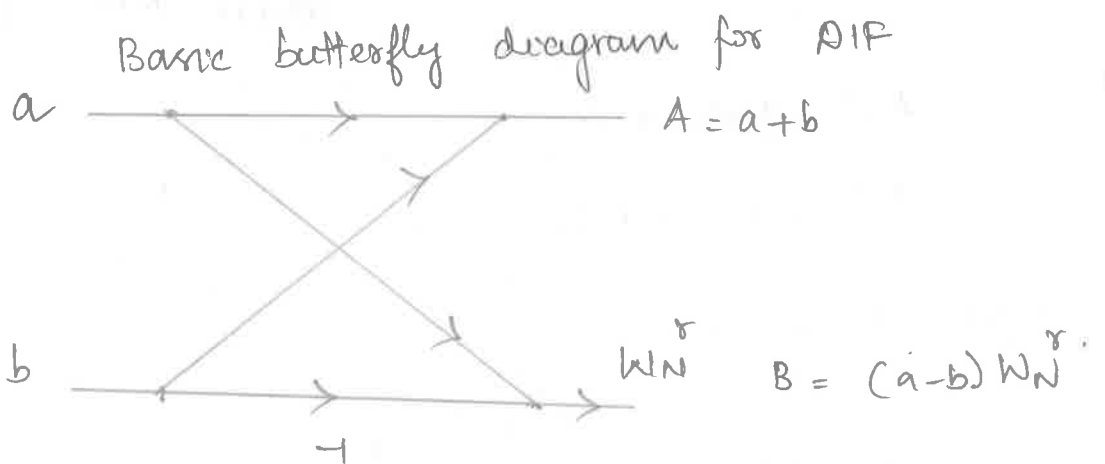 Basic butterfly diagram for DIF
a
A = a+b
b
W_N^r
B = (a-b) W_N^r.
-1